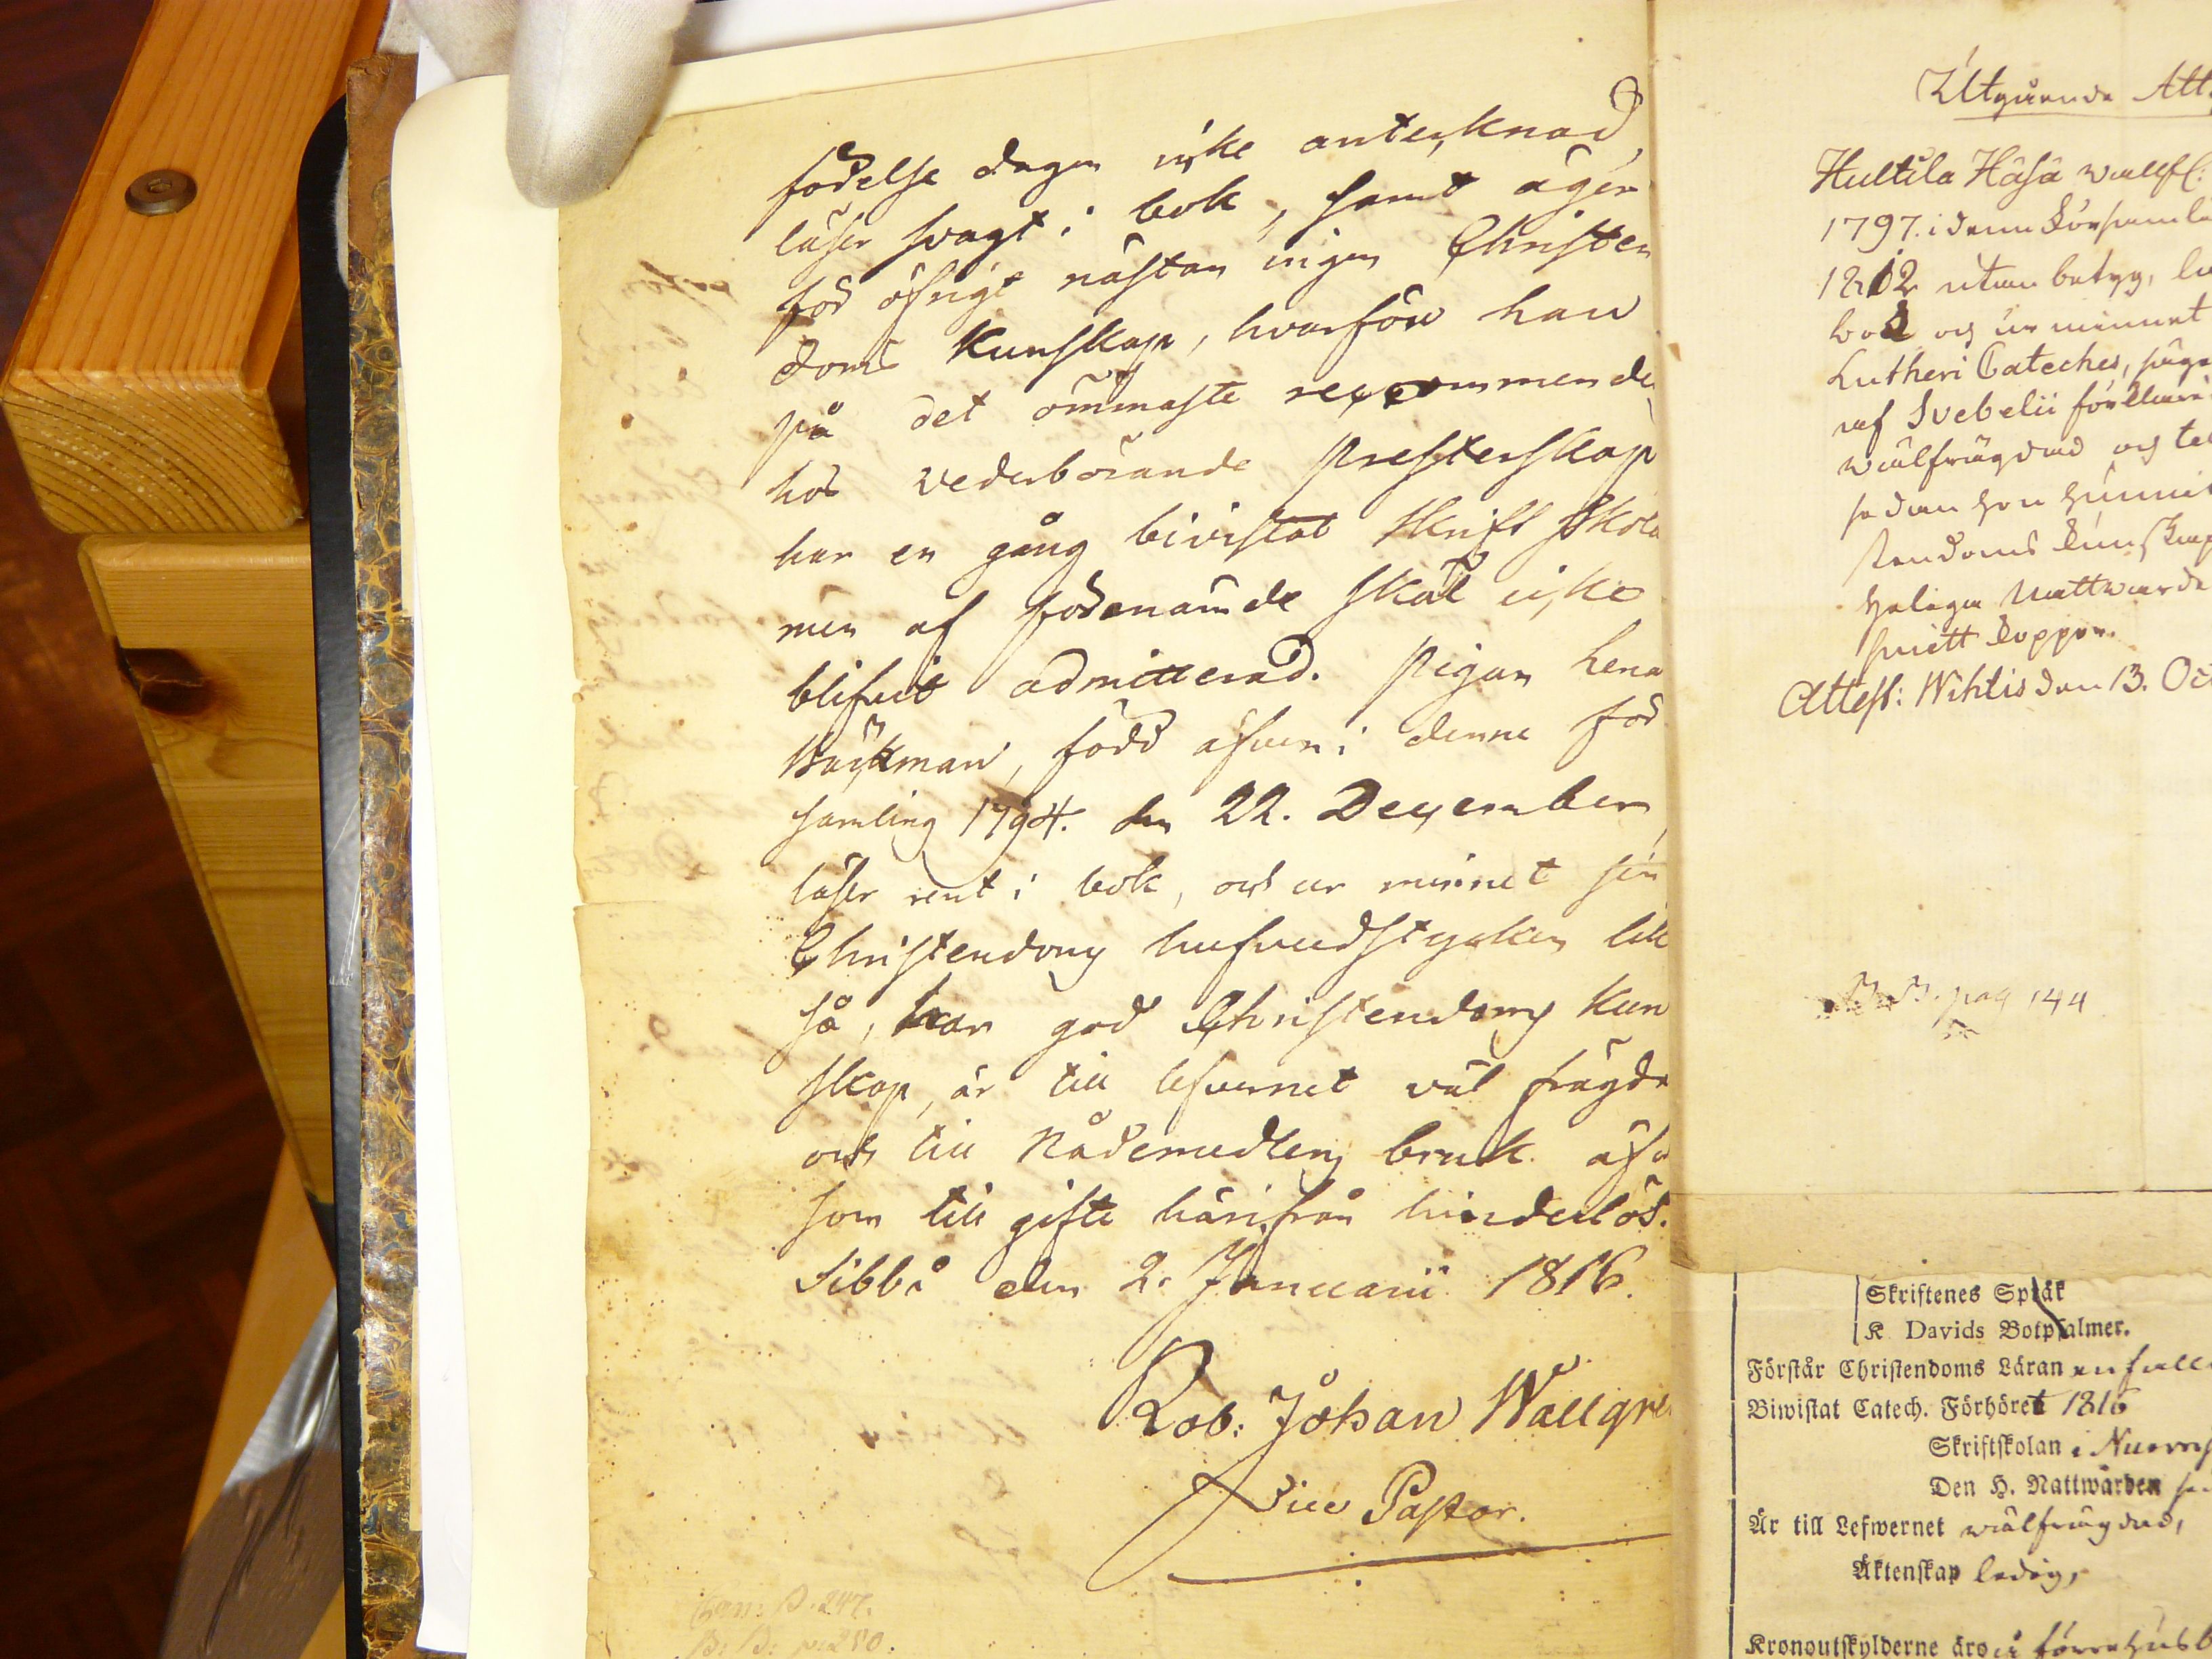 födelse dagen icke antecknad,
läser svagt i bok, samt äger
för öfrigt nästan ingen Christen
doms Kunskap, hvarföre han
på det ömmaste recommenderas
hos vederbörande Presterskap
har en gång bivistat Skrift Skola
men af förenämde skäl icke
blifvit admitterad. Pigan Lena
Bäckman, född äfven i denne för
samling 1794. den 22. December,
läser rent i bok, och ur minnet sin
Christendoms hufvudstycken lik
så, har god Christendoms Kun
skap, är till lefvernet väl frägda
och till Nådemedlens bruk äfv
som till gifte härifrån hinderlös.
Sibbå den 2. Januarii 1816.
Rob: Johan Wallgre
Vice Pastor.
p. 247.
B: B: p. 250.
Utgående Att
Hultila Häjä
1797. i denna Församli
1812 utan betyg,
bok och ur minnet
Lutheri Cateches, säga
af Svebelii förklari
wälfrägdad och
sedan hon
stendoms Kunskap
Heliga Nattwarde
haft Koppor.
Attest: Wihtis den 13. Oct
B. B. pag 144
Skriftenes Språk
K Davids Botpsalmer.
Förstår Christendoms Läran enfall
Biwistat Catech. Förhöret 1816
Skriftskolan i Nuorm
Den H. Nattwarden
Är till Lefwernet wälfrägdad,
Äktenskap ledig,
Kronoutskylderne äro i förra Husb